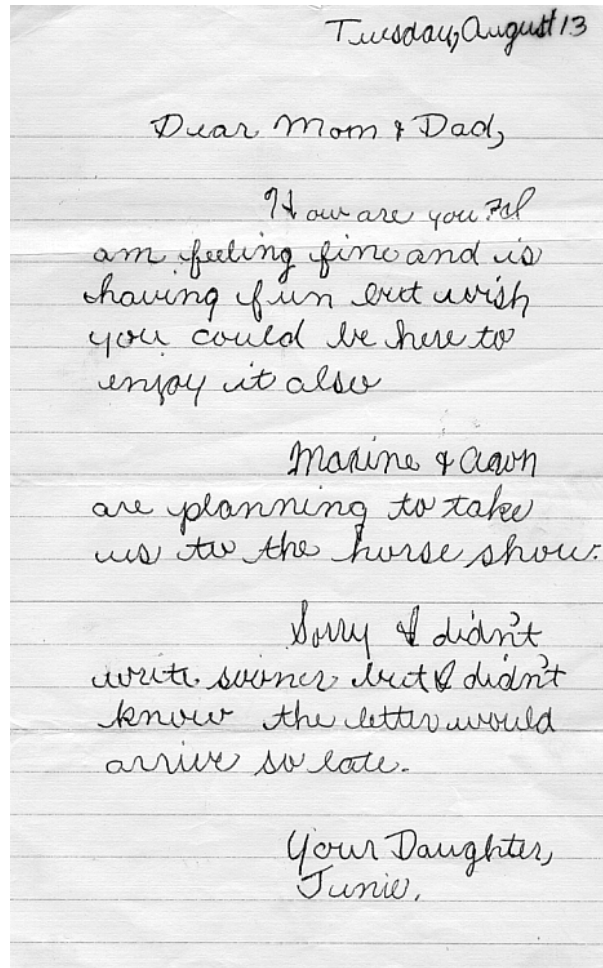 Tuesday, August 13
Dear Mom & Dad,
How are you? I
am feeling fine and is
having fun but wish
you could be here to
enjoy it also
Maxine & Aavn
are planning to take
us to the horse show.
Sorry I didn't
write sooner but I didn't
know the letter would
arrive so late.
Your Daughter,
Junie.